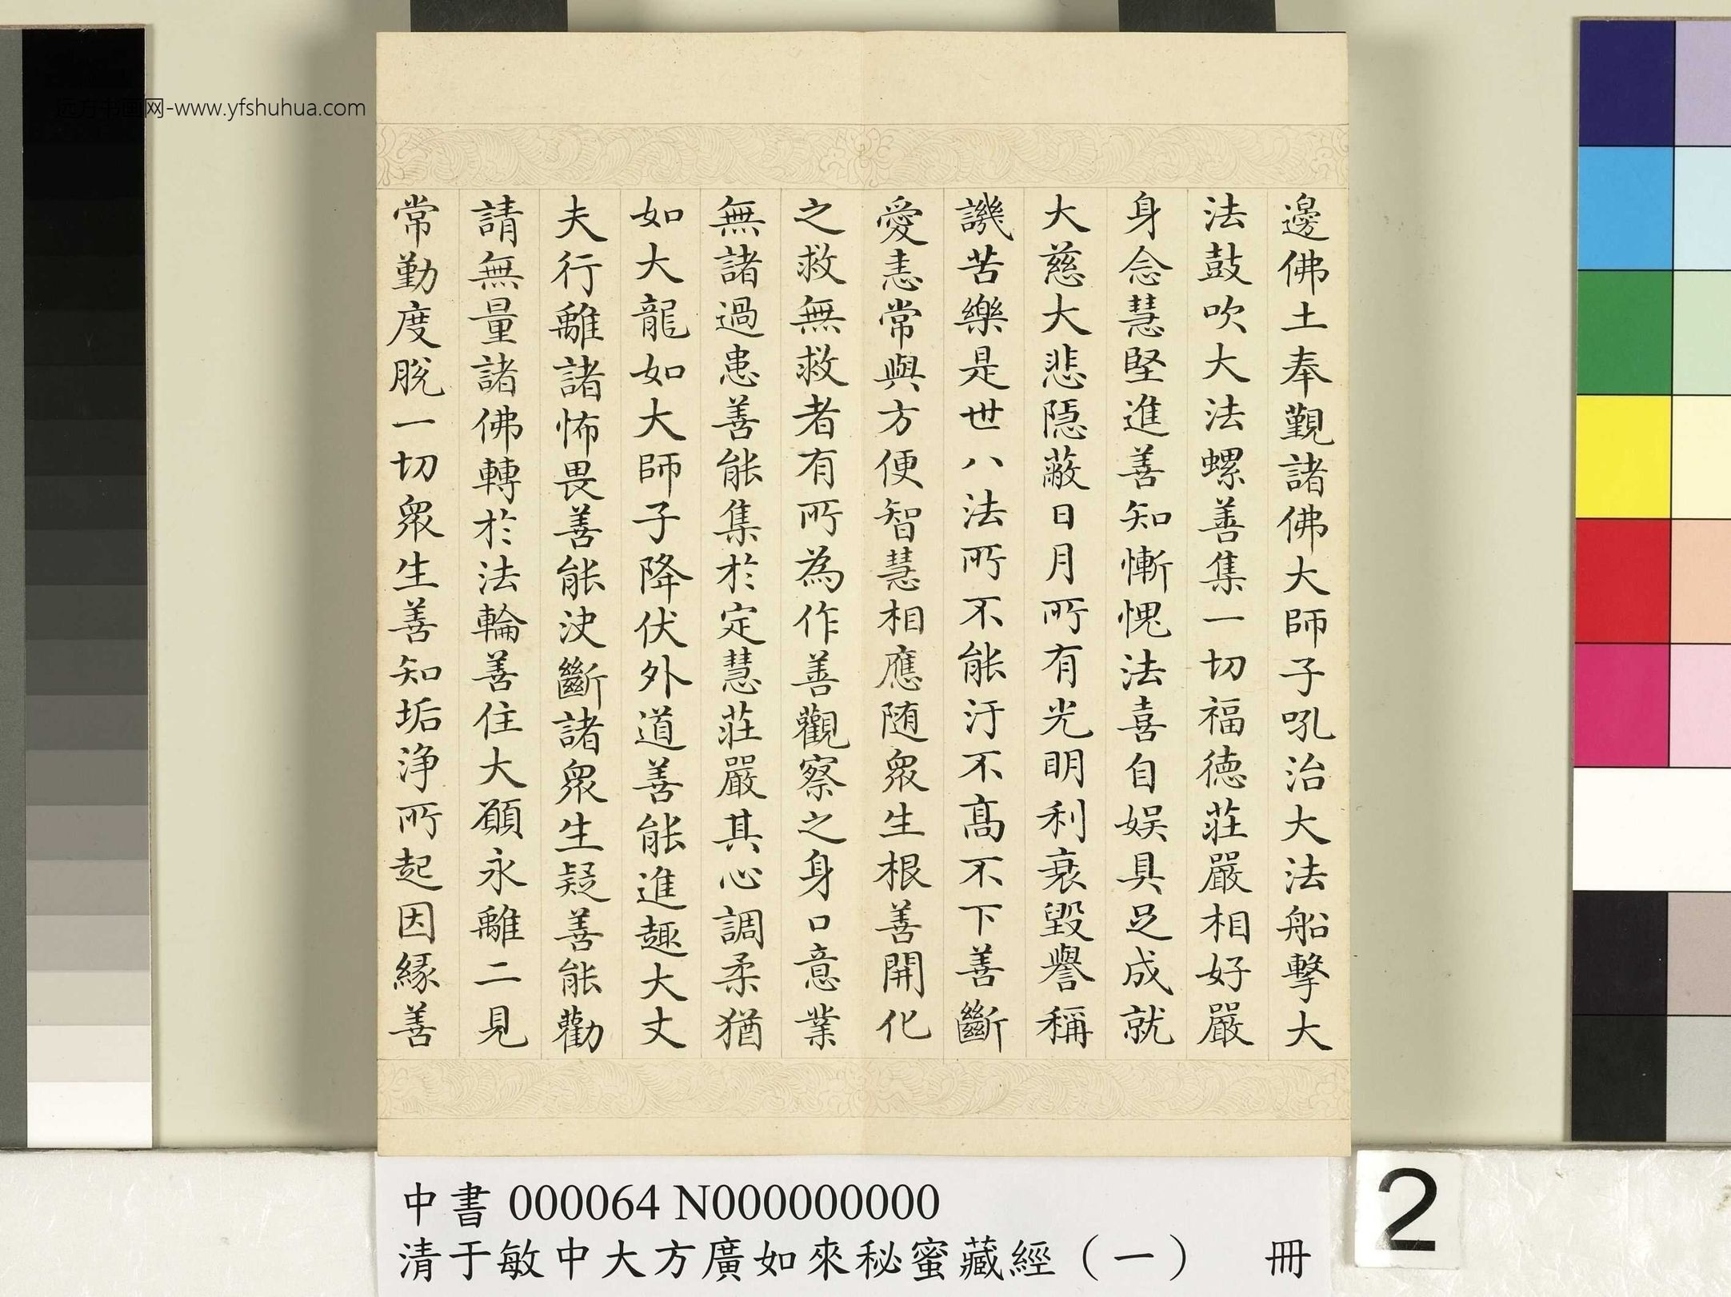 邊佛土奉觐諸佛大師子吼治大法船擊大
法鼓吹大法螺善集一切福德莊嚴相好嚴
身念慧堅進善知慚愧法喜自娛具足成就
大慈大悲隱蔽日月所有光明利衰毀譽稱
譏苦樂是世八法所不能汙不髙不下善斷
愛恚常與方便智慧相應随衆生根善開化
之救無救者有所為作善觀察之身口意業
無諸過患善能集於定慧莊嚴其心調柔猶
如大龍如大師子降伏外道善能進趣大丈
夫行離諸怖畏善能決斷諸衆生疑善能勸
請無量諸佛轉於法輪善住大願永離二見
常勤度脫一切衆生善知垢淨所起因緣善
中書 000064 N000000000
清于敏中大方廣如來秘蜜藏經（一） 冊
2
网-www.yfshuhua.com